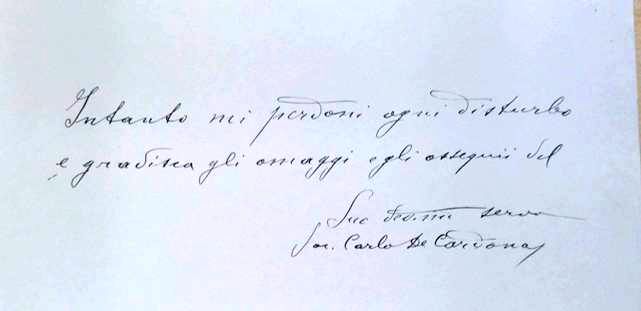 Intanto mi perdoni ogni disturbo
e gradisca gli omaggi e gli ossequii del
Suo dev.mo servo
Sac. Carlo De Cardona